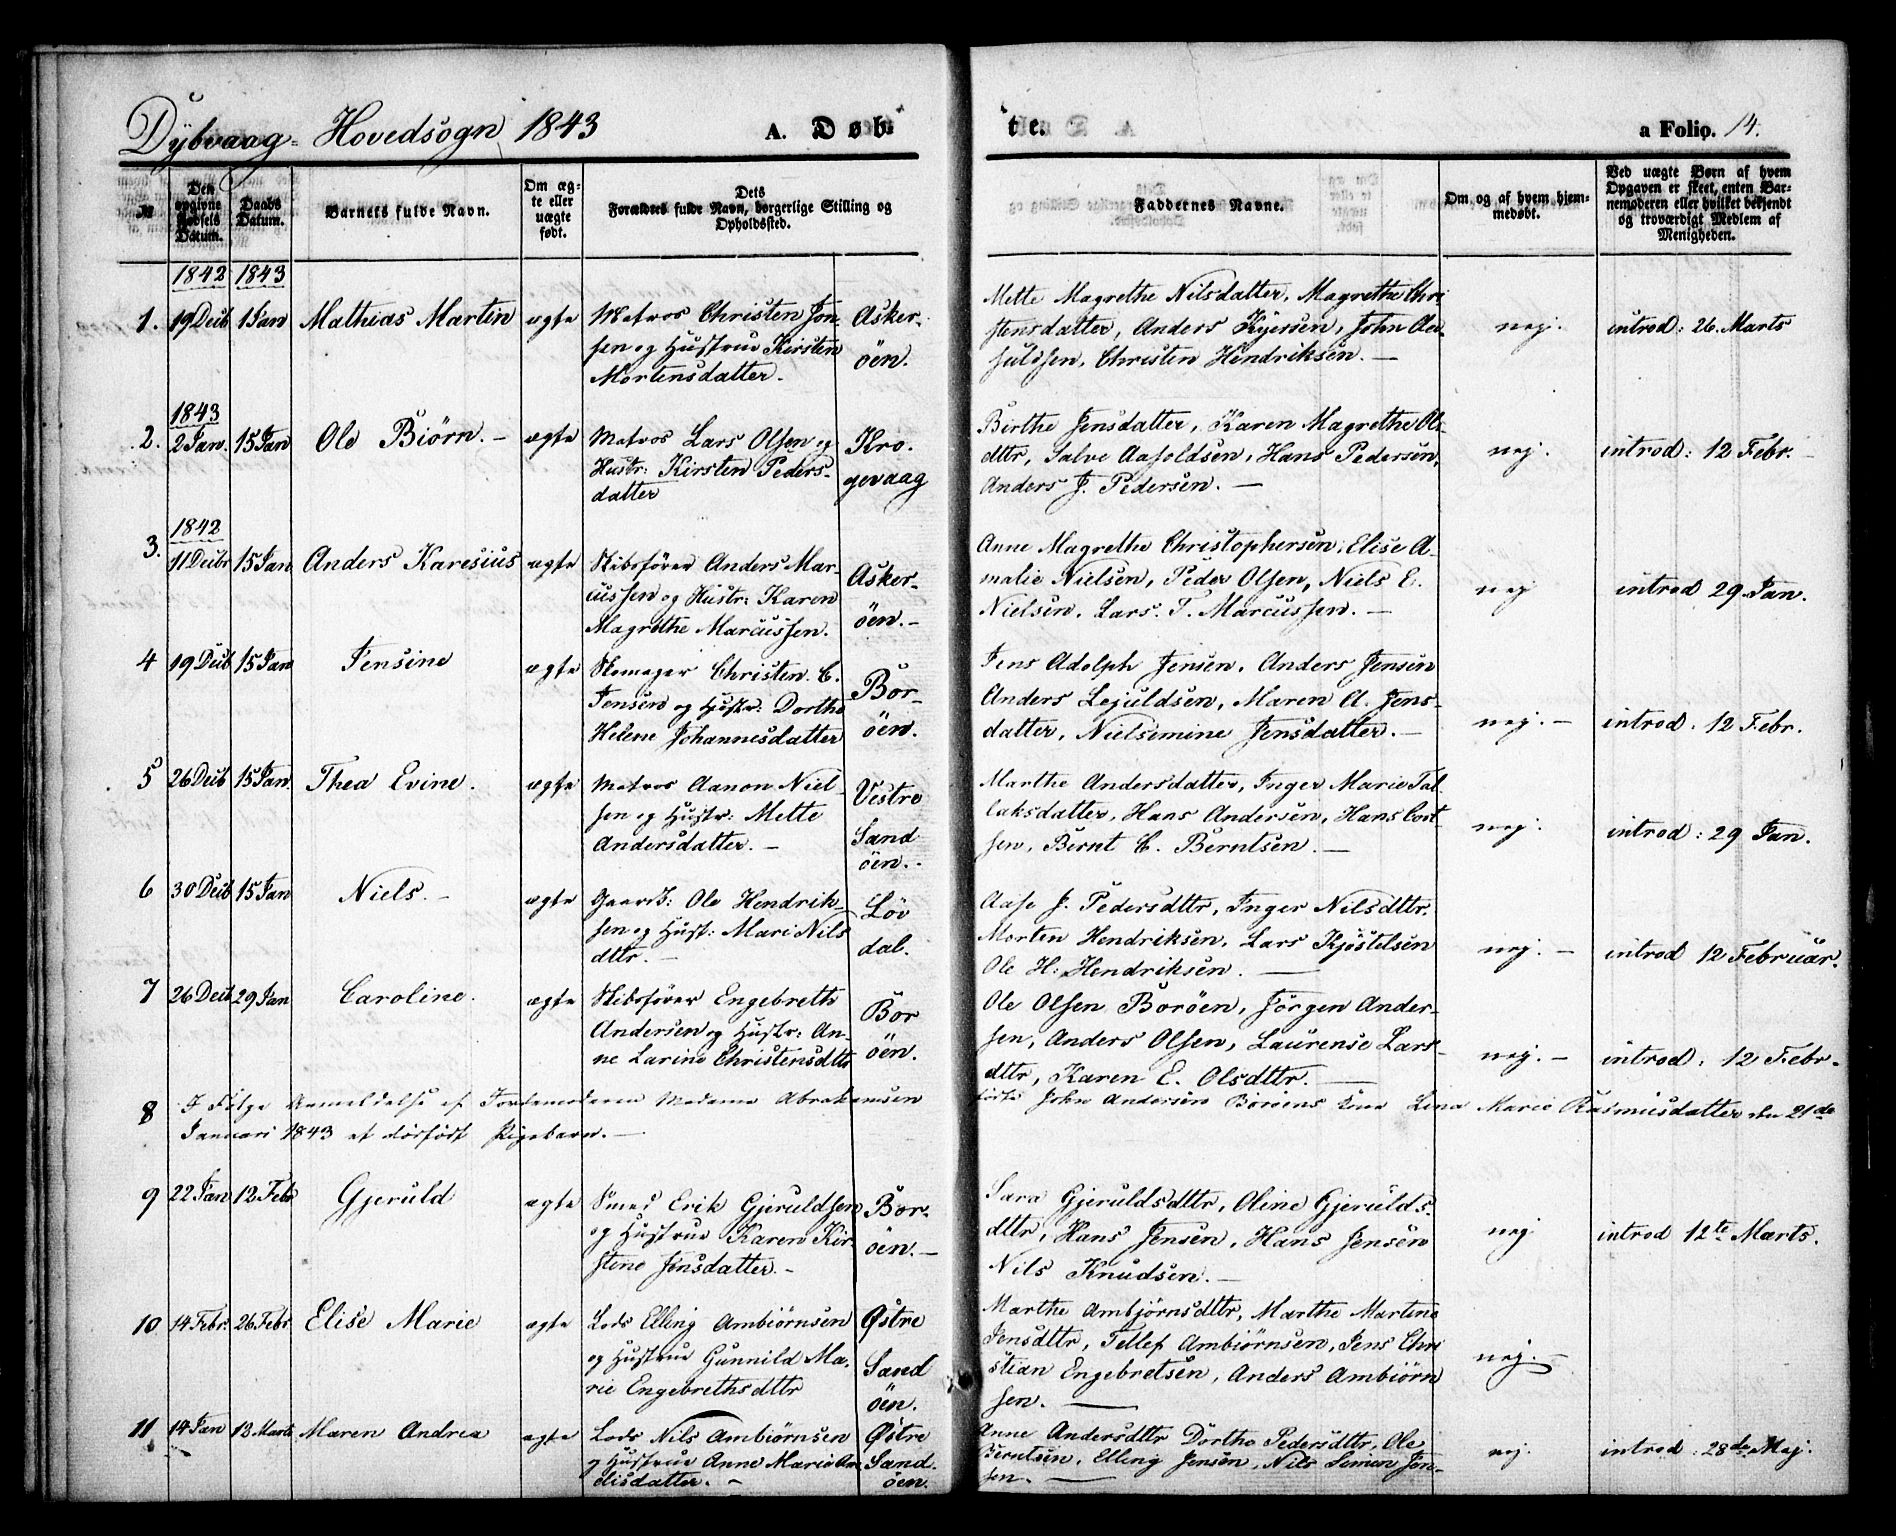 Dybvaag Hovedsogn 1843
A. Døb-
te.
a Folio. 14.
№
Den opgivne Fødsels Datum.
Daabs Datum.
Barnets fulde Navn.
Om ægte eller uægte født.
Dets
Forældres fulde Navn, borgerlige Stilling og
Opholdssted.
Faddernes Navne.
Om og af hvem hjem-
medøbt.
Ved uægte Børn af hvem
Opgaven er skeet, enten Bar-
nemoderen eller hvilket bekjendt
og troværdigt Medlem af
Menigheden.
1842 1843
1. 19 Decb 1 Jan Mathias Martin ægte Matros Christen Jen-
sen og Hustrue Kirsten
Mortensdatter.
Asker-
öen.
Mette Magrethe Nilsdatter, Magrethe Chri
stensdatter, Anders Kjersen, John
Christen Hendriksen. —
nej. introd: 26. Marts
1843
2. 2 Jan. 15 Jan Ole Biörn. – ægte Matros Lars Olsen og
Hustr: Kirsten Peders-
datter
Kro.
gevaag
Birthe Jensdatter, Karen Magrethe Ols
dttr, Salve Aasoldsen, Hans Pedersen,
Anders J. Pedersen. —
nej. introd: 12 Febr.
1842
3. 11 Decbr 15 Jan Anders Karesius ægte Skibsfører Anders Mar-
cussen og Hustr: Karen
Magrethe Marcussen.
Asker-
öen. –
Anne Magrethe Christophersen, Elise A-
malie Nielsen, Peder Olsen, Niels E.
Nielsen, Lars. T. Marcussen. —
nej introd 29 Jan.
4 19 Decb 15 Jan Jensine ægte Skomager Christen. C.
Jensen og Hustr: Dorthe
Helene Johannesdatter
Bor-
öen.
Jens Adolph Jensen, Anders Jensen
Anders Lejuldsen, Maren A. Jens-
datter, Nielsemine Jensdatter. —
nej. – introd: 12 Febr.
5 26 Decb 15 Jan Thea Evine. ægte Matros Aanon Niel-
sen og Hustr: Mette
Andersdatter. –
Vestre
Sand
öen. .
Marthe Andersdatter, Inger Marie Tal-
laksdatter, Hans Andersen, Hans Cort-
sen, Bernt C. Berntsen. —
nej. introd: 29 Jan.
6 30 Decb 15 Jan Niels. – ægte Gaardb: Ole Hendrik-
sen og Hust: Mari Nils
dttr. –
Löv
dal.
Aase J. Pedersdttr, Inger Nilsdttr.
Morten Hendriksen, Lars Kjöstelsen
Ole H: Hendriksen. —
nej. – introd 12 Februar.
7 26 Decb 29 Jan Caroline. ægte Skibsfører Engebreth
Andersen og Hustr: An-
ne Larine Christensdttr
Bor
öen.
Ole Olsen Boröen, Jörgen Ander-
sen, Anders Olsen, Laurense Lars-
dttr, Karen E. Olsdttr. —
nej. – introd: 12 Febr.
8 I Følge Anmeldelse af Jordemoderen Madame Abrahamsen
fødte John Andersen Boröens Kone Lena Marie Rasmusdatter den 21de
Januari 1843 et dødfødt Pigebarn. —
9 22 Jan 12 Febr Gjeruld ægte Smed Erik Gjeruldsen
og Hustrue Karen Kir-
stine Jensdatter. –
Bor-
öen. –
Sara Gjeruldsdttr, Oline Gjerulds-
dttr, Hans Jensen, Hans Jensen
Nils Knudsen. —
nej introd 12te Marts.
10 14 Febr. 26 Febr. Elise Marie ægte Lods Elling Ambiörnsen
og Hustrue Gunnild Ma-
rie Engebrethsdttr
Østre
Sand
öen.
Marthe Ambjörnsdttr, Marthe Martine
Jensdttr, Tellef Ambiörnsen, Jens Chri
stian Engebretsen, Anders Ambiörn
sen. —
nej. –
11 14 Jan 13 Marts Maren Andrea ægte Lods Nils Ambiörnsen
og Hustrue Anne Marie An-
disdatter. –
Østre
Sand.
öen.
Anne Andersdttr Dorthe Pedersdttr, Ole
Berntsen, Elling Jensen, Nils Simon Jen-
sen. —
nej. introd: 28de Maj.